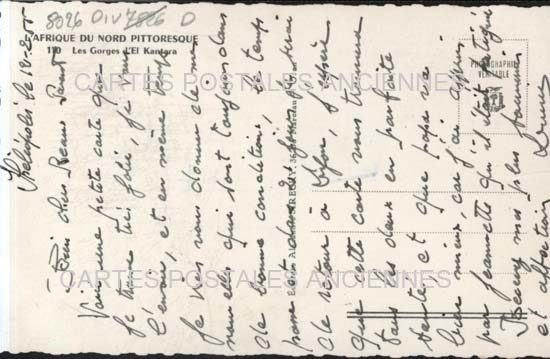 8026 DIV 7826 D
AFRIQUE DU NORD PITTORESQUE
110 Les Gorges d'El Kantara
PHOTOGRAPHIE
VÉRITABLE
CARTES POSTALES ANCIENNES
CARTES POSTALES ANCIENNES
le 18-2-55
Mes chers Beaux Parents
Voici une petite carte que
je trouve très jolie, je vous
l'envoie, et en même temps
je vous donne de mes
nouvelles qui sont toujours dans
de bonne conditions, le temps
passe et dans jours je serai
de retour à j'espère
que cette carte vous trouvera
tous les deux en parfaite
santé et que papa va
bien mieux, car j'ai appris
par Jeannette qu'il était fatigué
Recevez mes plus
et affection